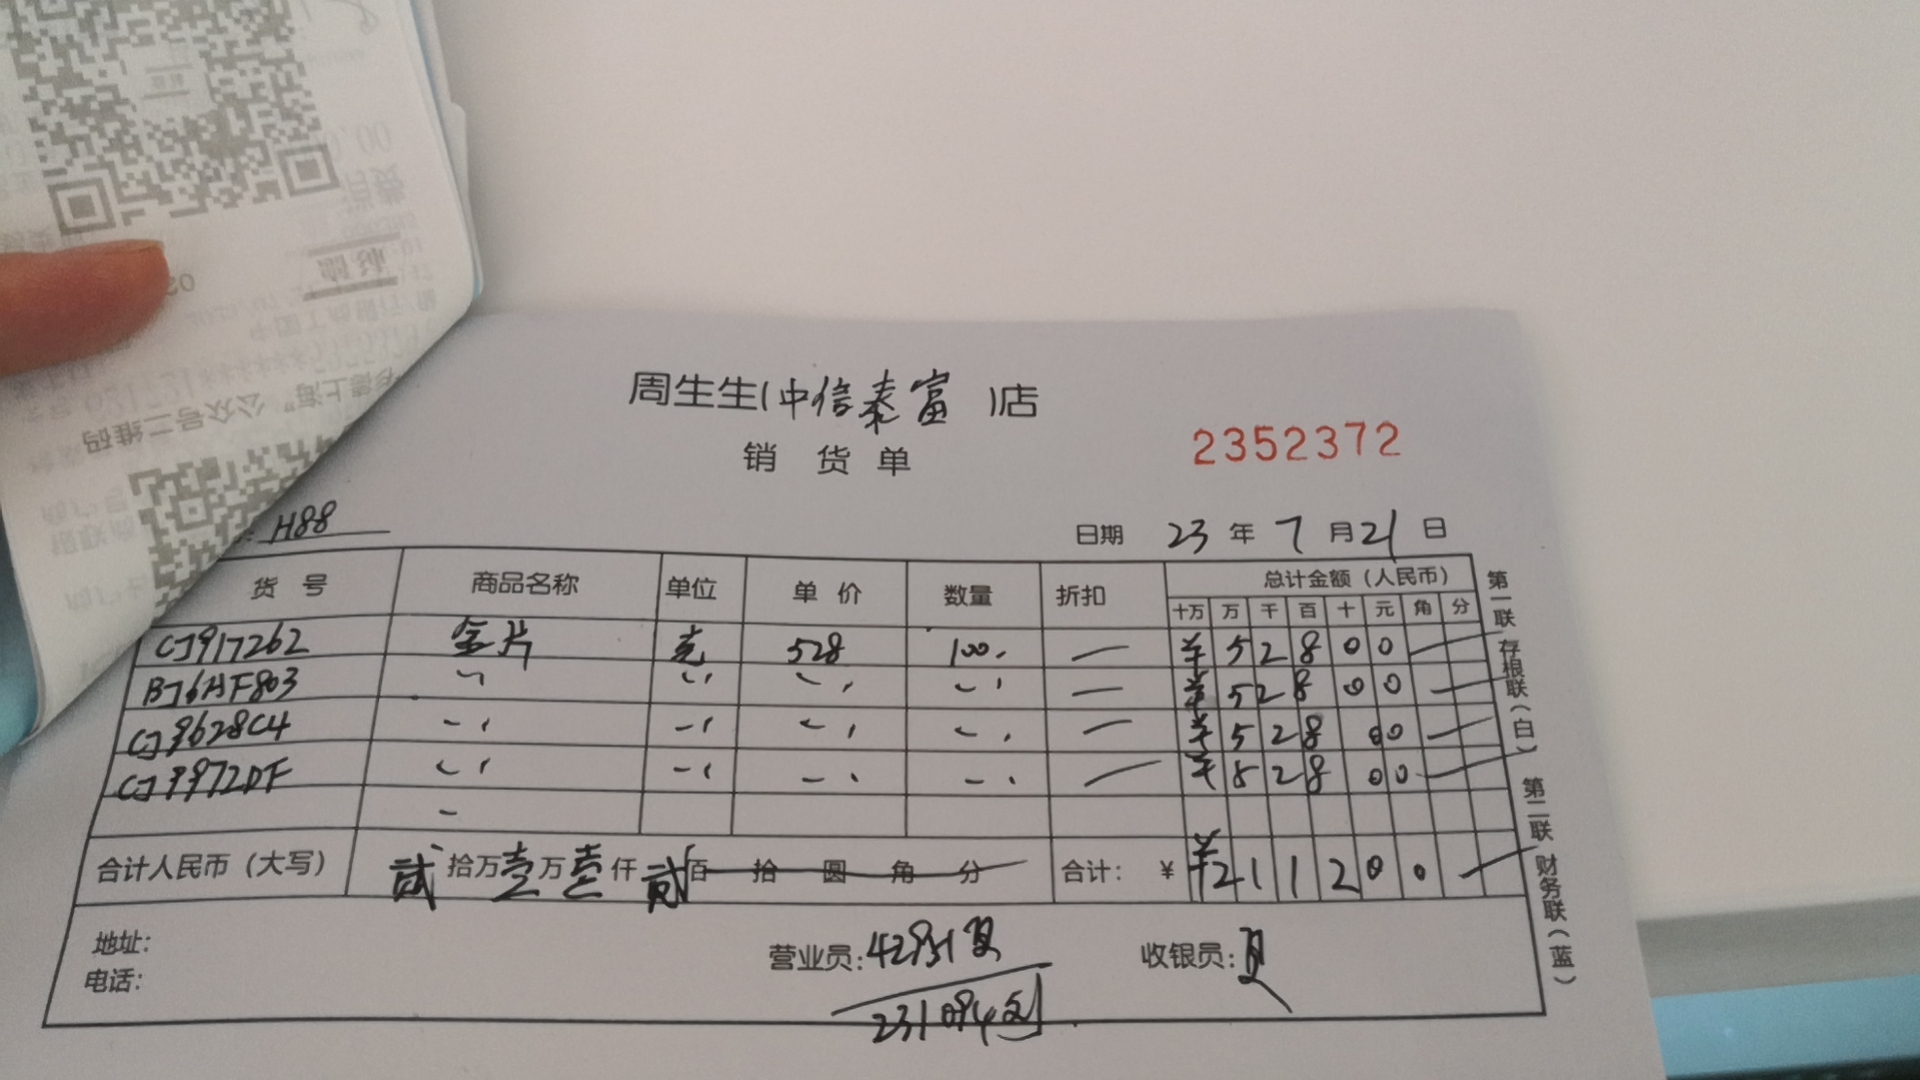 周生生(中信泰富)店
销 货 单
2352372
H88
日期 23 年 7 月 21 日
货 号 商品名称 单位 单 价 数量 折扣 总计金额（人民币）
十万 万 千 百 十 元 角 分
CJ917262 金片 克 528 100. — ¥ 5 2 8 0 0 —
BJ6HF803 〃 〃 〃 〃 — ¥ 5 2 8 0 0 —
CJ9628C4 〃 〃 〃 〃 — ¥ 5 2 8 0 0 —
CJ9972DF 〃 〃 〃 〃 — ¥ 5 2 8 0 0 —
合计人民币（大写） 贰 拾万 壹 万 壹 仟 贰 百 拾 圆 角 分 合计： ¥ ¥ 2 1 1 2 0 0 —
地址：
电话：
营业员: 42951 夏
收银员: 夏
第一联 存根联（白） 第二联 财务联（蓝）
公众号二维码